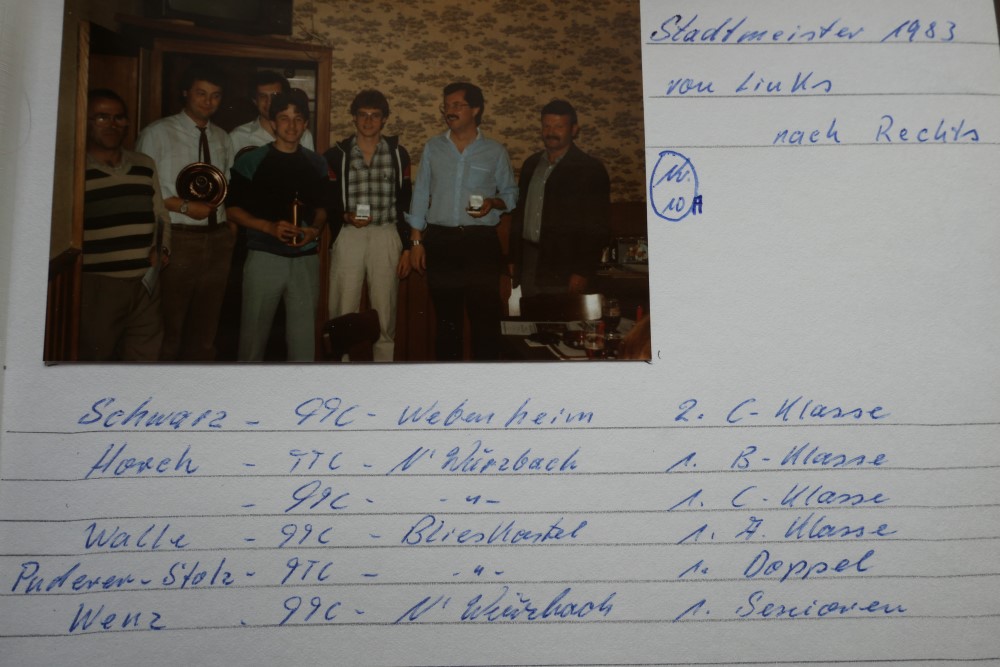 Stadtmeister 1983
von Links
nach Rechts
10
Schwarz - TTC - Webenheim 2. C-Klasse
Horch - TTC - N'Würzbach 1. B-Klasse
- TTC - -"- 1. C-Klasse
Walle - TTC - Blieskastel 1. A. Klasse
Puderer-Stolz - TTC - -"- 1. Doppel
Wenz - TTC - N'Würzbach 1. Senioren